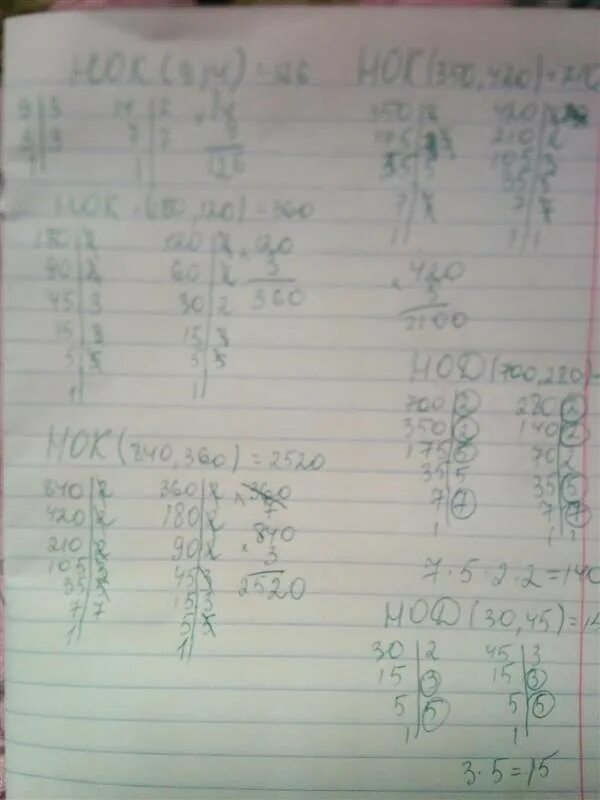 НОК (9,14) = 126
9 | 3
3 | 3
1
14 | 2
7 | 7
1
× 14
9
126
НОК (180,120) = 360
180 | 2
90 | 2
45 | 3
15 | 3
5 | 5
1
120 | 2
60 | 2
30 | 2
15 | 3
5 | 5
1
× 120
3
360
НОК (840,360) = 2520
840 | 2
420 | 2
210 | 2
105 | 3
35 | 5
7 | 7
1
360 | 2
180 | 2
90 | 2
45 | 3
15 | 3
5 | 5
1
× 360
7
840
× 3
2520
НОК (350,420) = 2100
350 | 2
175 | 5
35 | 5
7 | 7
1
420 | 2
210 | 2
105 | 3
35 | 5
7 | 7
1 | 1
× 420
5
2100
НОД (700,280) =
700 | 2
350 | 2
175 | 5
35 | 5
7 | 7
1
280 | 2
140 | 2
70 | 2
35 | 5
7 | 7
1 | 1
7·5·2·2=140
НОД (30,45) = 15
30 | 2
15 | 3
5 | 5
1
45 | 3
15 | 3
5 | 5
1
3·5=15